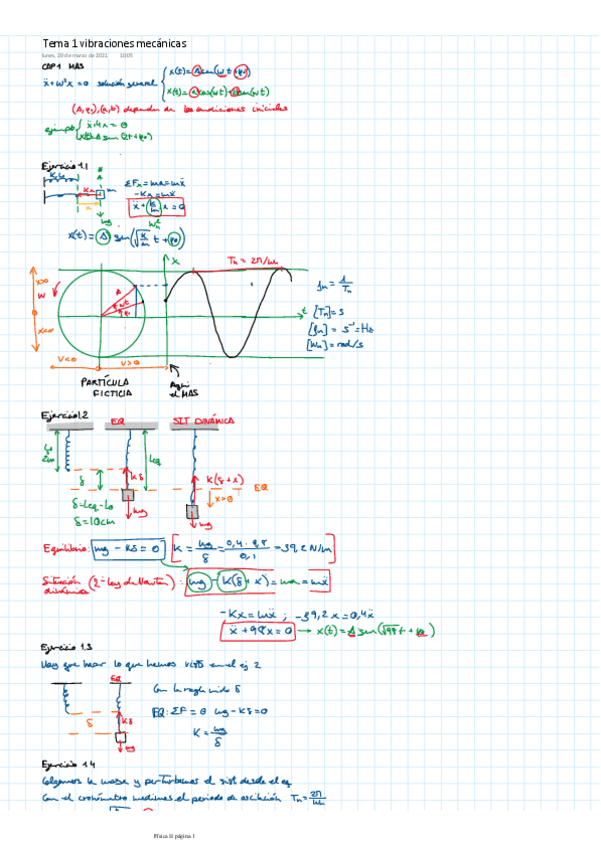 Tema 1 vibraciones mecánicas
CAP 1 MAS
ẍ+ω²x=0 solución general { x(t)=A sen(ωt+φ₀)
x(t)=a cos(ωt)+b sen(ωt)
(A,φ₀),(a,b) dependen de las condiciones iniciales
ejemplo { ẍ+4x=0
x(t)=A sen(2t+φ₀)
Ejercicio 1.1
ΣFx=ma=mẍ
-Kx=mẍ
ẍ+(k/m)x=0
mg
ωn²
x(t)=A sen(√(k/m) t+φ₀)
x
Tn=2π/ωn
x>0
ω
x<0
A
ωt
φ₀
t
fn=1/Tn
[Tn]=s
[fn]=s⁻¹=Hz
[ωn]=rad/s
v<0
v>0
PARTÍCULA
FICTICIA
Aquí
el MAS
Ejercicio 1.2
EQ
SIT DINÁMICA
Leq
δ
Kδ
K(δ+x)
EQ
x>0
δ=Leq-L₀
δ=10cm
mg
mg
Equilibrio: mg-Kδ=0 [K=mg/δ=0,4·9,8/0,1=39,2 N/m]
Situación dinámica (2ª Ley de Newton): mg-K(δ+x)=ma=mẍ
-Kx=mẍ; -39,2x=0,4ẍ
ẍ+98x=0 → x(t)=A sen(√98 t+φ₀)
Ejercicio 1.3
Hay que hacer lo que hemos visto en el ej 2
EQ
Con la regla mido δ
δ
Kδ
EQ: ΣF=0 mg-Kδ=0
K=mg/δ
mg
Ejercicio 1.4
Colgamos la masa y perturbamos el sist desde el eq
Con el cronómetro medimos el periodo de oscilación Tn=2π/ωn
Física II página 1